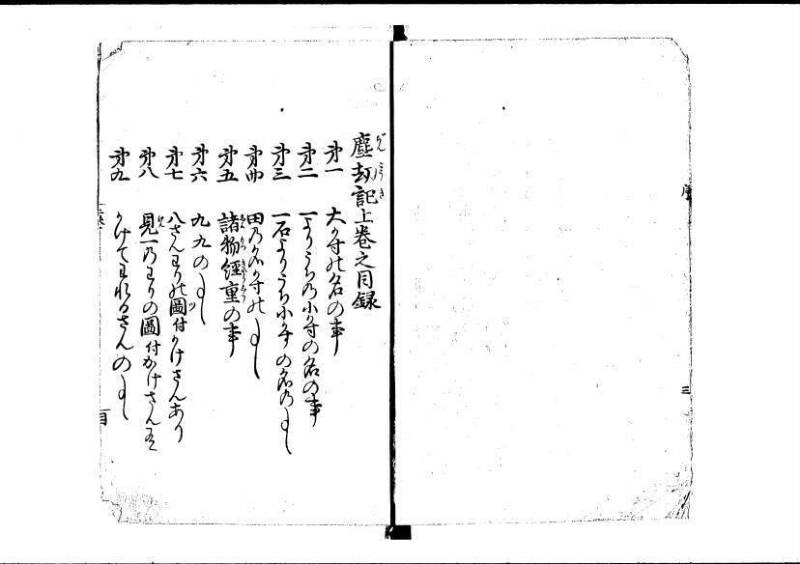 塵劫記上巻之目録
第一 大かずの名の事
第二 一よりうちの小かずの名の事
第三 一石よりうち小かずの名の事
第四 田の名かずの事
第五 諸物経重の事
第六 九九の事
第七 八さんわりの図付かけさんあり
第八 見一のわりの図付かけさん
第九 かけてわれるさんの事
三